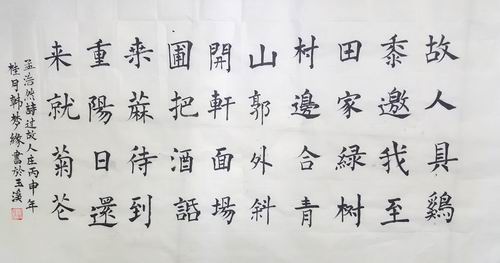 故人具鷄
黍邀我至
田家緑树
村邊合青
山郭外斜
開軒面場
圃把酒話
桒蔴待到
重陽日還
来就菊花
孟浩然詩过故人庄丙申年
桂月韩梦缘書於玉溪